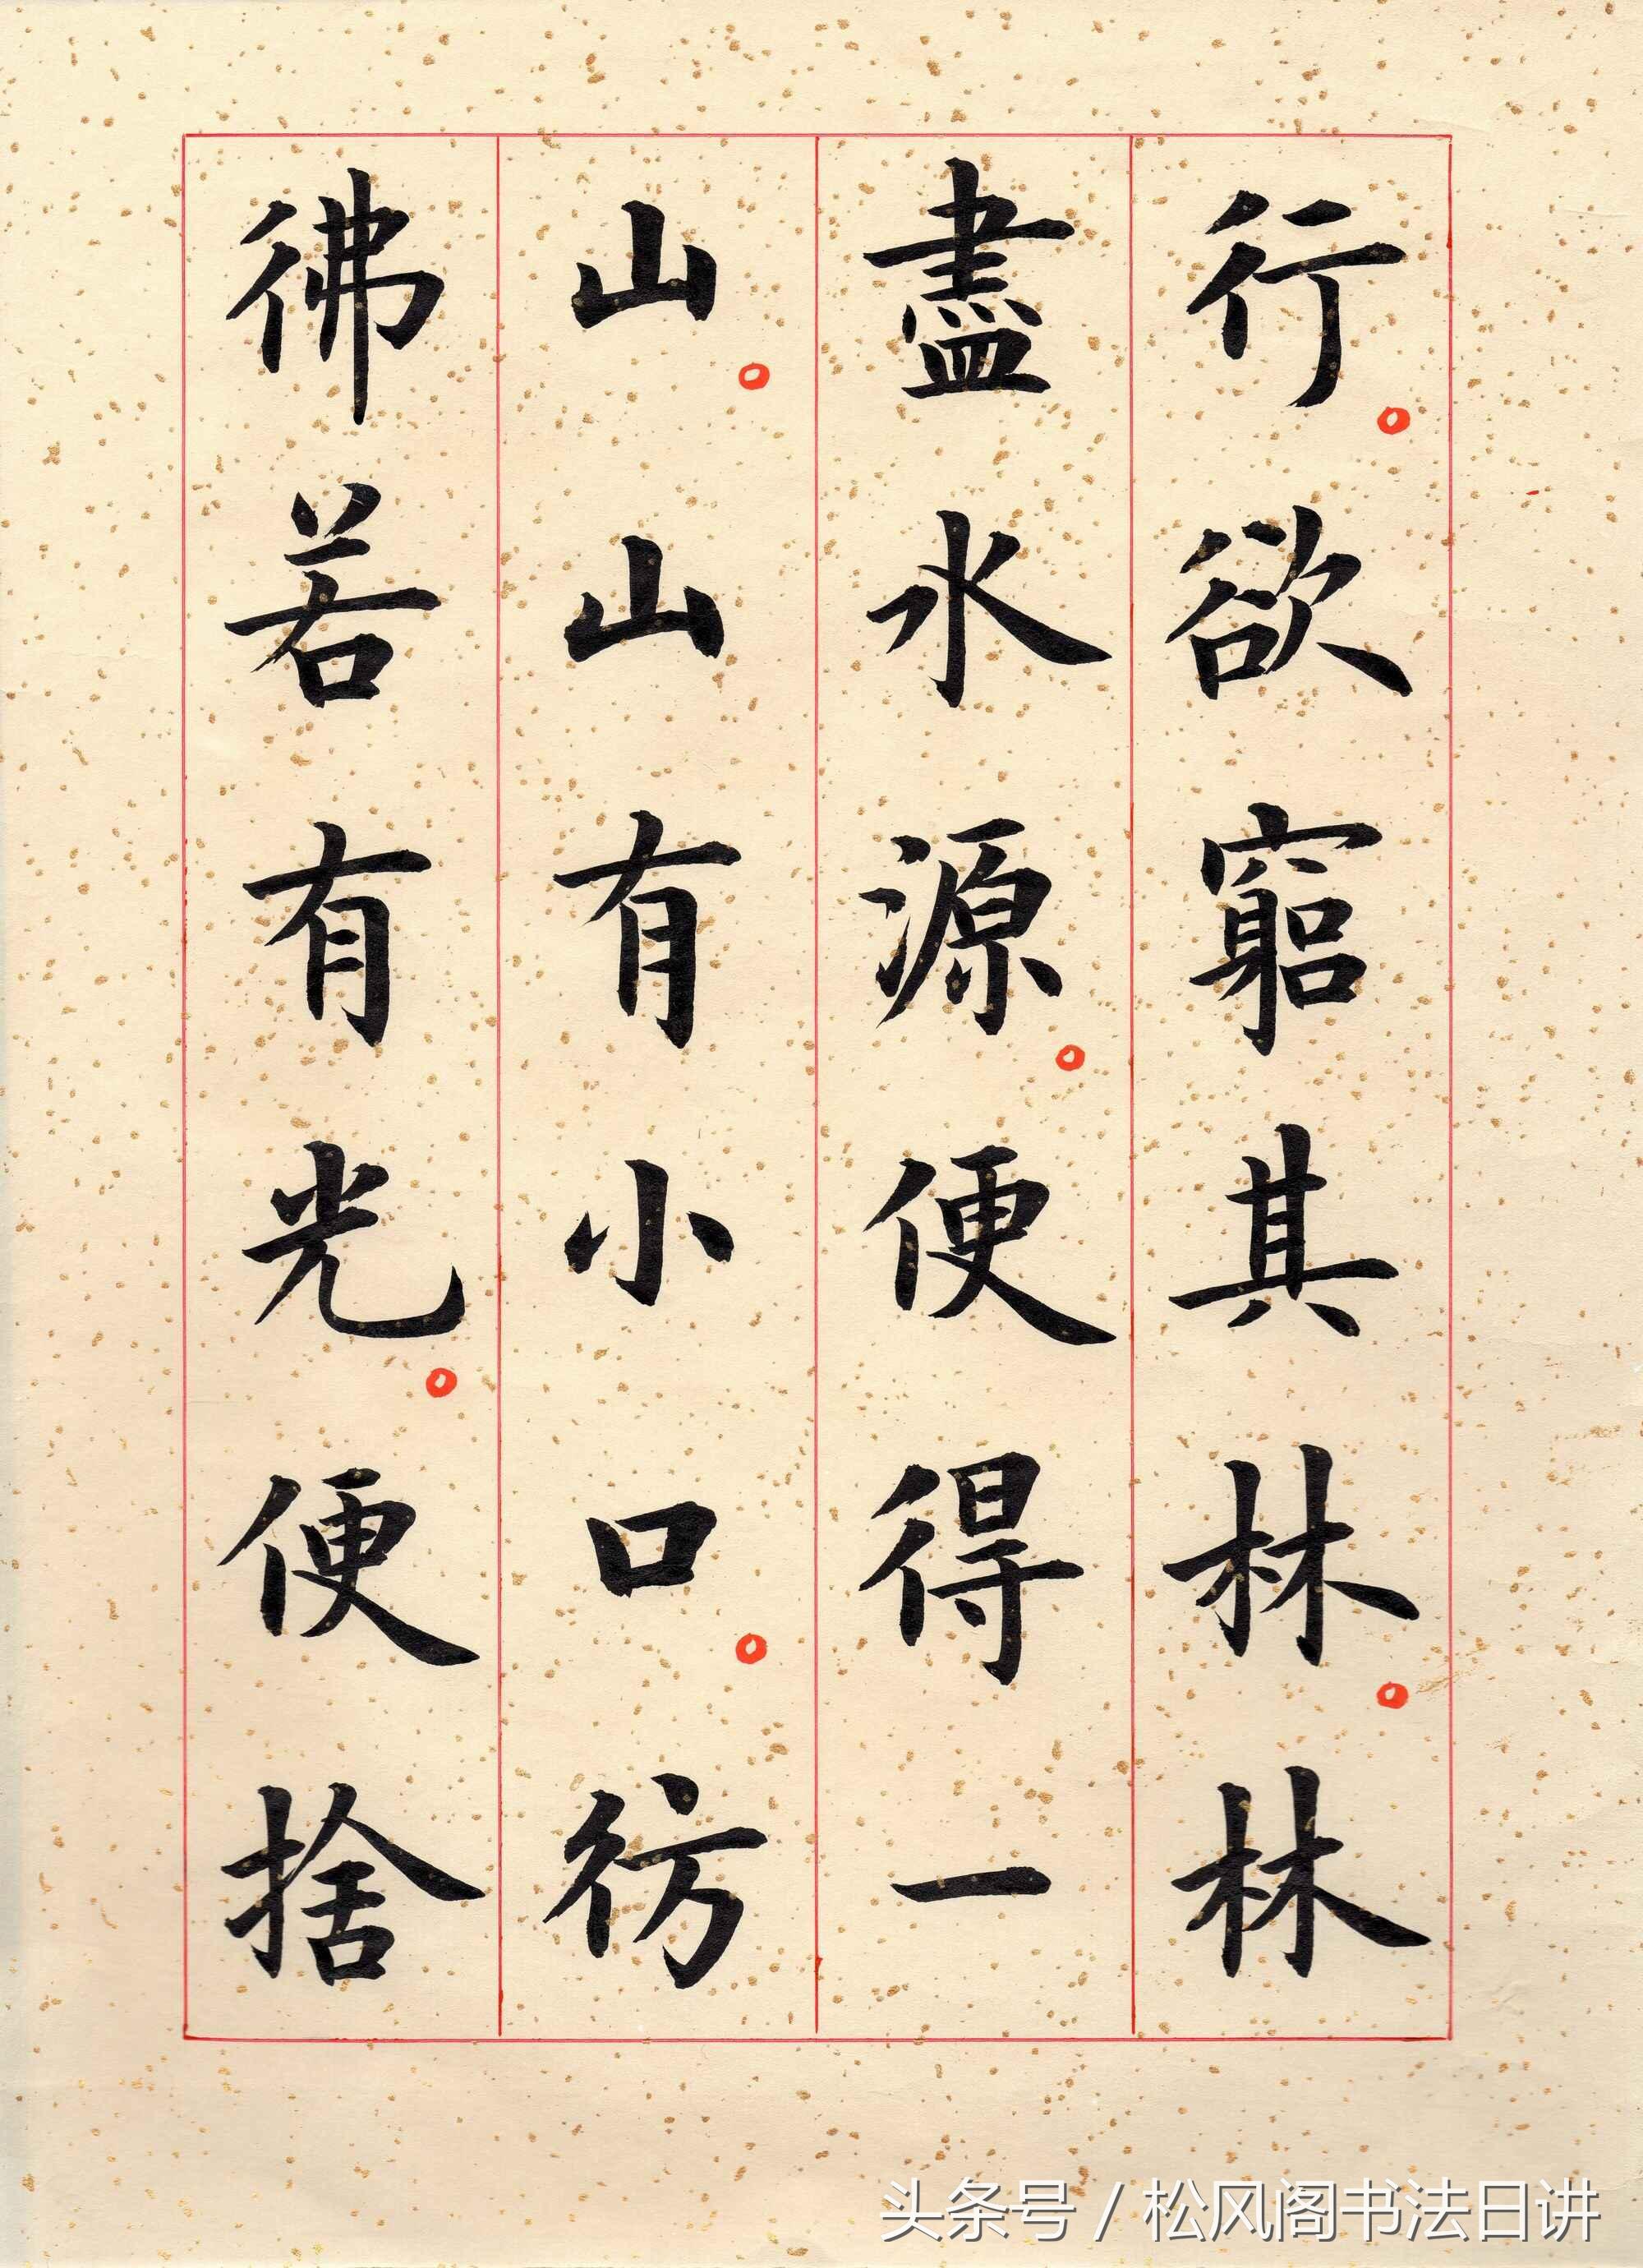 行。欲窮其林。林
盡水源。便得一
山。山有小口。彷
彿若有光。便捨
头条号 / 松风阁书法日讲